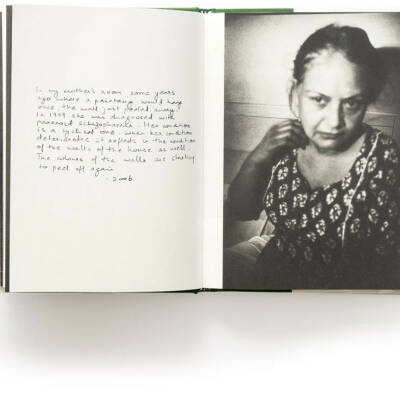 In my mother's room some years
ago where a painting would have
once, the wall just peeled away.
In 1999 she was diagnosed with
paranoid schizophrenia. Her condition
is a cyclical one. When her condition
deteriorates it reflects in the condition
of the walls of the house as well.
The colours of the walls are starting
to peel off again
- 2006.